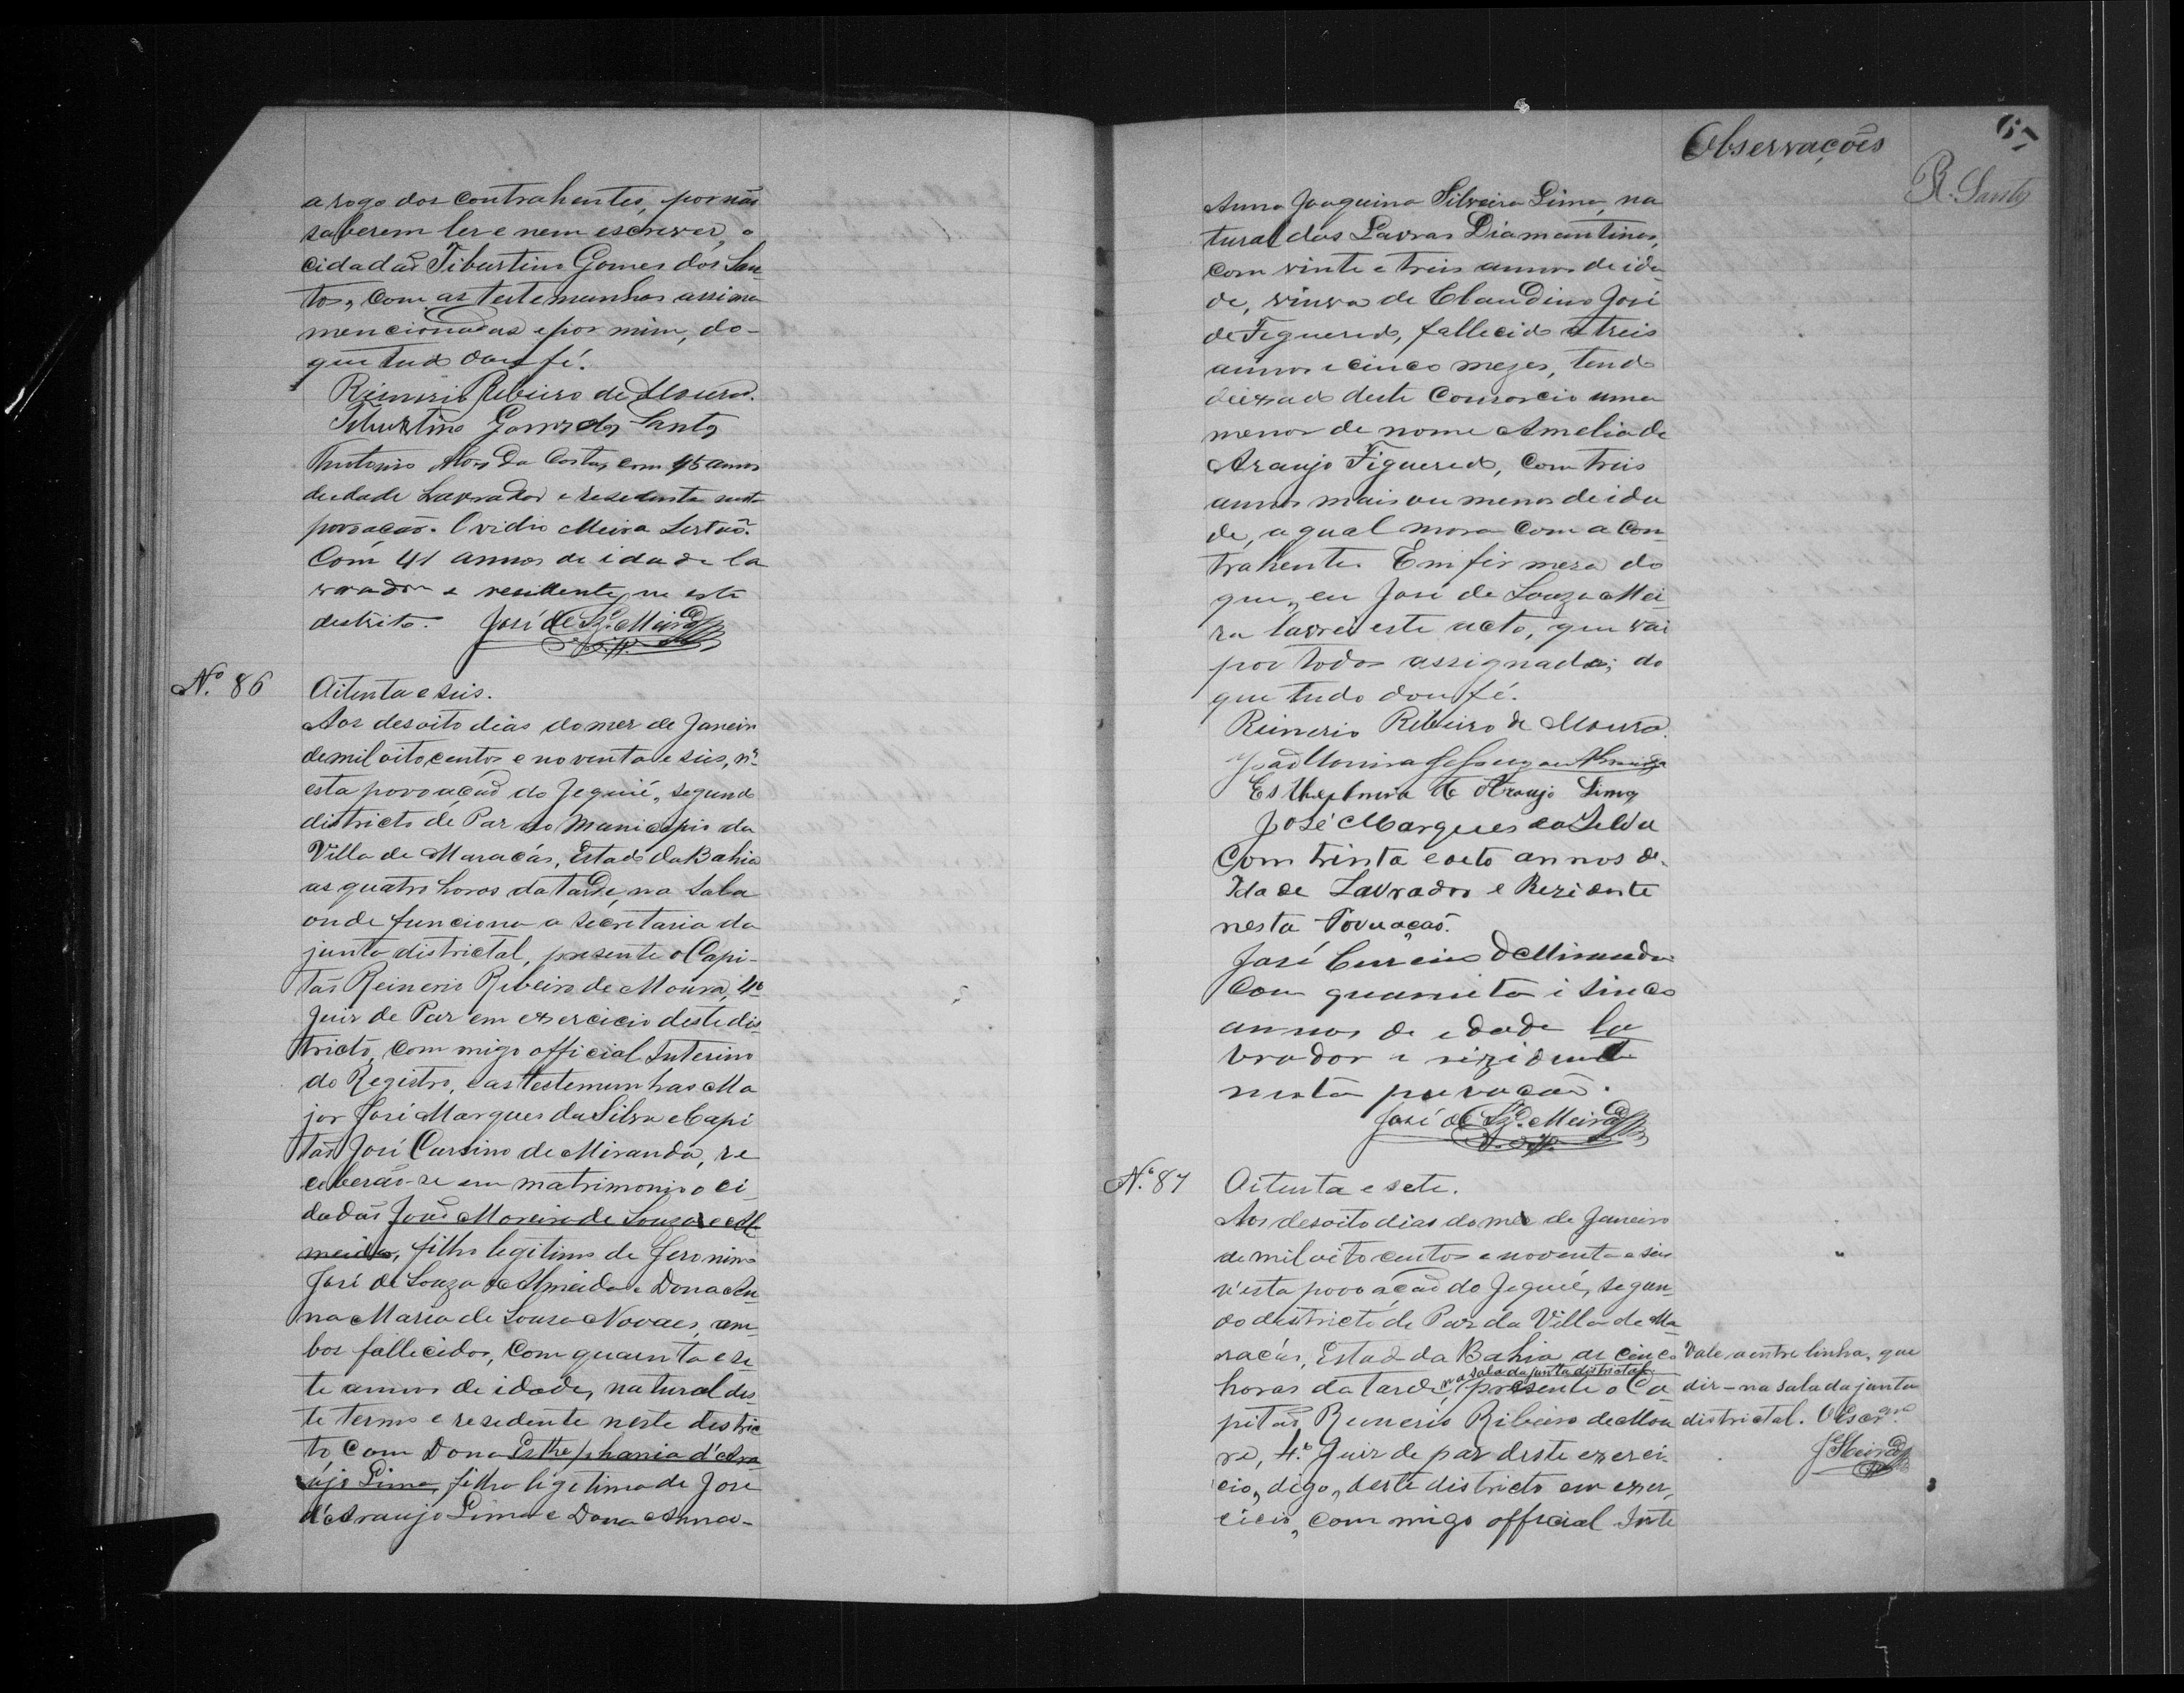 a rogo dos contrahentes, por não
saberem ler e nem escrever, o
cidadão Tiburtino Gomes dos San
tos, com as testemunhas assima
mencionadas e por mim, do-
que tudo dou fé.
Reinerio Ribeiro de Moura.
Tiburtino Gomes dos Santos
Antonio Alves da Costa, com 45 annos
de edade Lavrador e residente nesta
povoação. Ovidio Meira Sertão.
Com 41 annos de idade la
vrador e residente ne este
destrito. José de Sz.ª Meira
Nº 86
Oitenta e seis.
Aos desoito dias do mez de Janeiro
de mil oitocentos e noventa e seis, n'
esta povoação do Jequié, segundo
districto de Paz do Municipio da
Villa de Maracás, Estado da Bahia
as quatro horas da tarde, na sala
onde funciona a secretaria da
junta districtal, presente o Capi-
tão Reinerio Ribeiro de Moura, 4º
Juiz de Paz em exercicio deste dis
tricto, com migo official Interino
do Registro, e as testemunhas Ma
jor José Marques da Silva e Capi
tão José Cursino de Miranda, re
ceberão-se em matrimonio o ci
dadão João Moreira de Souza e Al
meida, filho legitimo de Jeronimo
José de Souza e Almeida e Dona An
na Maria de Souza Novaes, am-
bos fallecidos, com quarenta e se
te annos de idade, natural des
te termo e residente neste distric
to, com Dona Esthephania d'Ara
ujo Lima, filha legitima de José
d'Araujo Lima e Dona Anna-
Observações
67
R. Santos
Anna Joaquina Silveira Lima, na
tural das Lavras Diamantinas,
com vinte e treis annos de ida
de, viuva de Claudino José
de Figueredo, fallecido a treis
annos e cinco mezes, tendo
deixado deste consorcio uma
menor de nome Amelia de
Araujo Figueredo, com treis
annos mais ou menos de ida
de, a qual mora com a con
trahente. Em firmeza do
que, eu José de Souza Mei
ra lavrei este acto, que vai
por todos assignado; do
que tudo dou fé.
Reinerio Ribeiro de Moura.
João Moreira de Souza e Almeida
Esthephania de Araujo Lima
José Marques da Silva
Com trinta e oeto annos de
Idade Lavrador e Rezidente
nesta Povuação.
José Cursino de Miranda
Com quarenta i sinco
annos de edade la
vrador e rizidente
nesta puvoação.
José de Sz.ª Meira
Nº 87
Oitenta e sete.
Aos desoito dias do mez de Janeiro
de mil oitocentos e noventa e seis
n'esta povoação do Jequié, segun
do districto de Paz da Villa de Ma
racás, Estado da Bahia as cinco
na sala da junta districtal
horas da tarde, presente o Ca
pitão Reinerio Ribeiro de Mou
ra, 4.º Juiz de paz deste exerci
cio, digo, deste districto em exer
cicio, com migo official Inte
Vale a entre linha, que
diz - na sala da junta
districtal. O Escr.am
J Meira